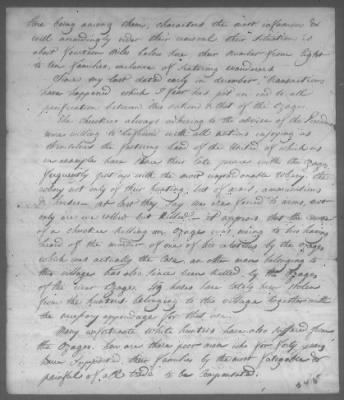 live being among them, characters the most infamous &
will accordingly order their removal their situation is
about fourteen Miles below here their number from eight
to ten families, exclusive of
Since my last dated early in december, transactions
have happened which I fear has put an end to all
pacification between this nation & that of the Osages.
The cherokees always adhering to the advice of the
were willing to with all nations enjoying as
themselves the fostering hand of the United of which as
an example have since their late peace with the Osages
frequently put up with the most unpardonable robbery, the
robery not only of their hunting, but of arms, ammunitions
& horses at last they say was forced to arms, not
only are we robbed but killed it appears, that the cause
of a cherokee killing an Osage was, owing to his having
heard of the murder of one of his relations by the Osages
which was actually the case, an other man belonging to
this village has also since been killed by the Osages
of the river Osage. horses have lately been stolen
from the belonging to this village together with
the necessary appendage for that use.
Many unfortunate white hunters have also suffered from
the Osages. How are these poor men who for forty years
have supported their families by the most fatigable &
painful of all trade to be compensated.